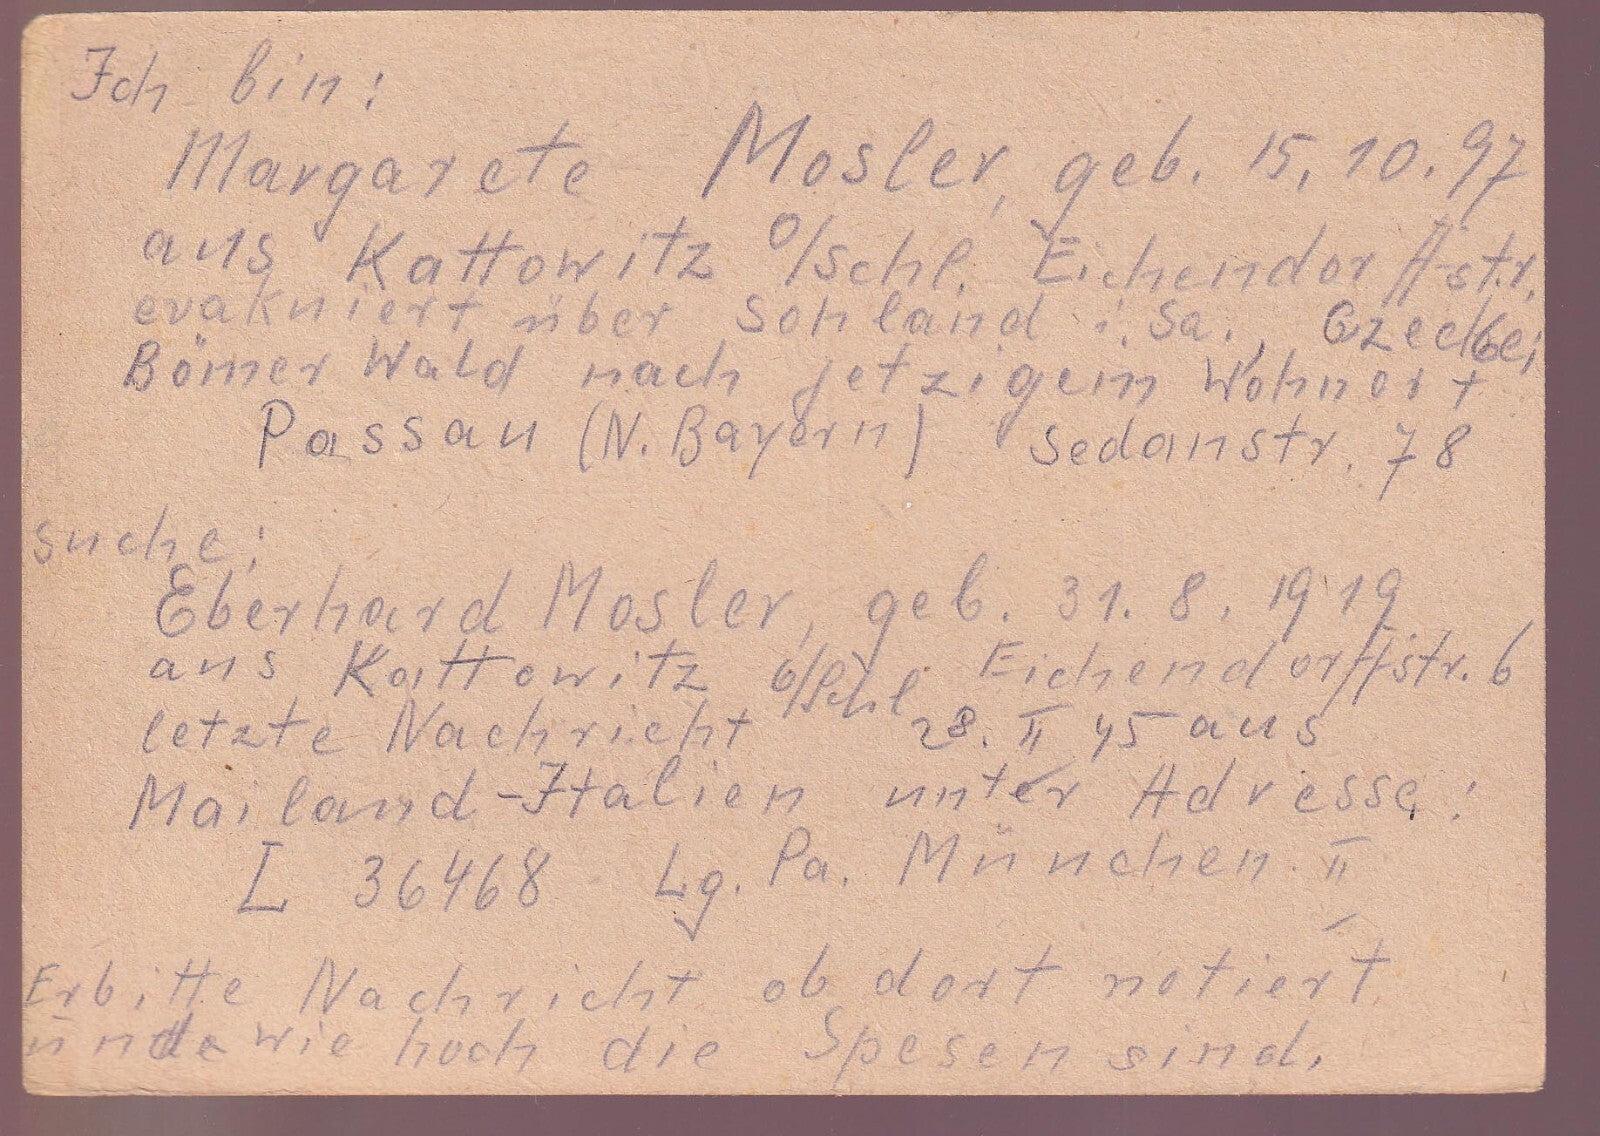 Ich bin:
Margarete Mosler, geb. 15.10.97
aus Kattowitz O/Schl. Eichendorffstr.
evakuiert über Sohland i. Sa.
Bömer Wald nach jetzigem Wohnort
Passau (N. Bayern) Sedanstr. 78
suche:
Eberhard Mosler, geb. 31.8.1919
aus Kattowitz O/Schl. Eichendorffstr. 6
letzte Nachricht 28. II 45 aus
Mailand-Italien unter Adresse:
L 36468 Lg. Pa. München II
Erbitte Nachricht ob dort notiert
und wie hoch die Spesen sind.